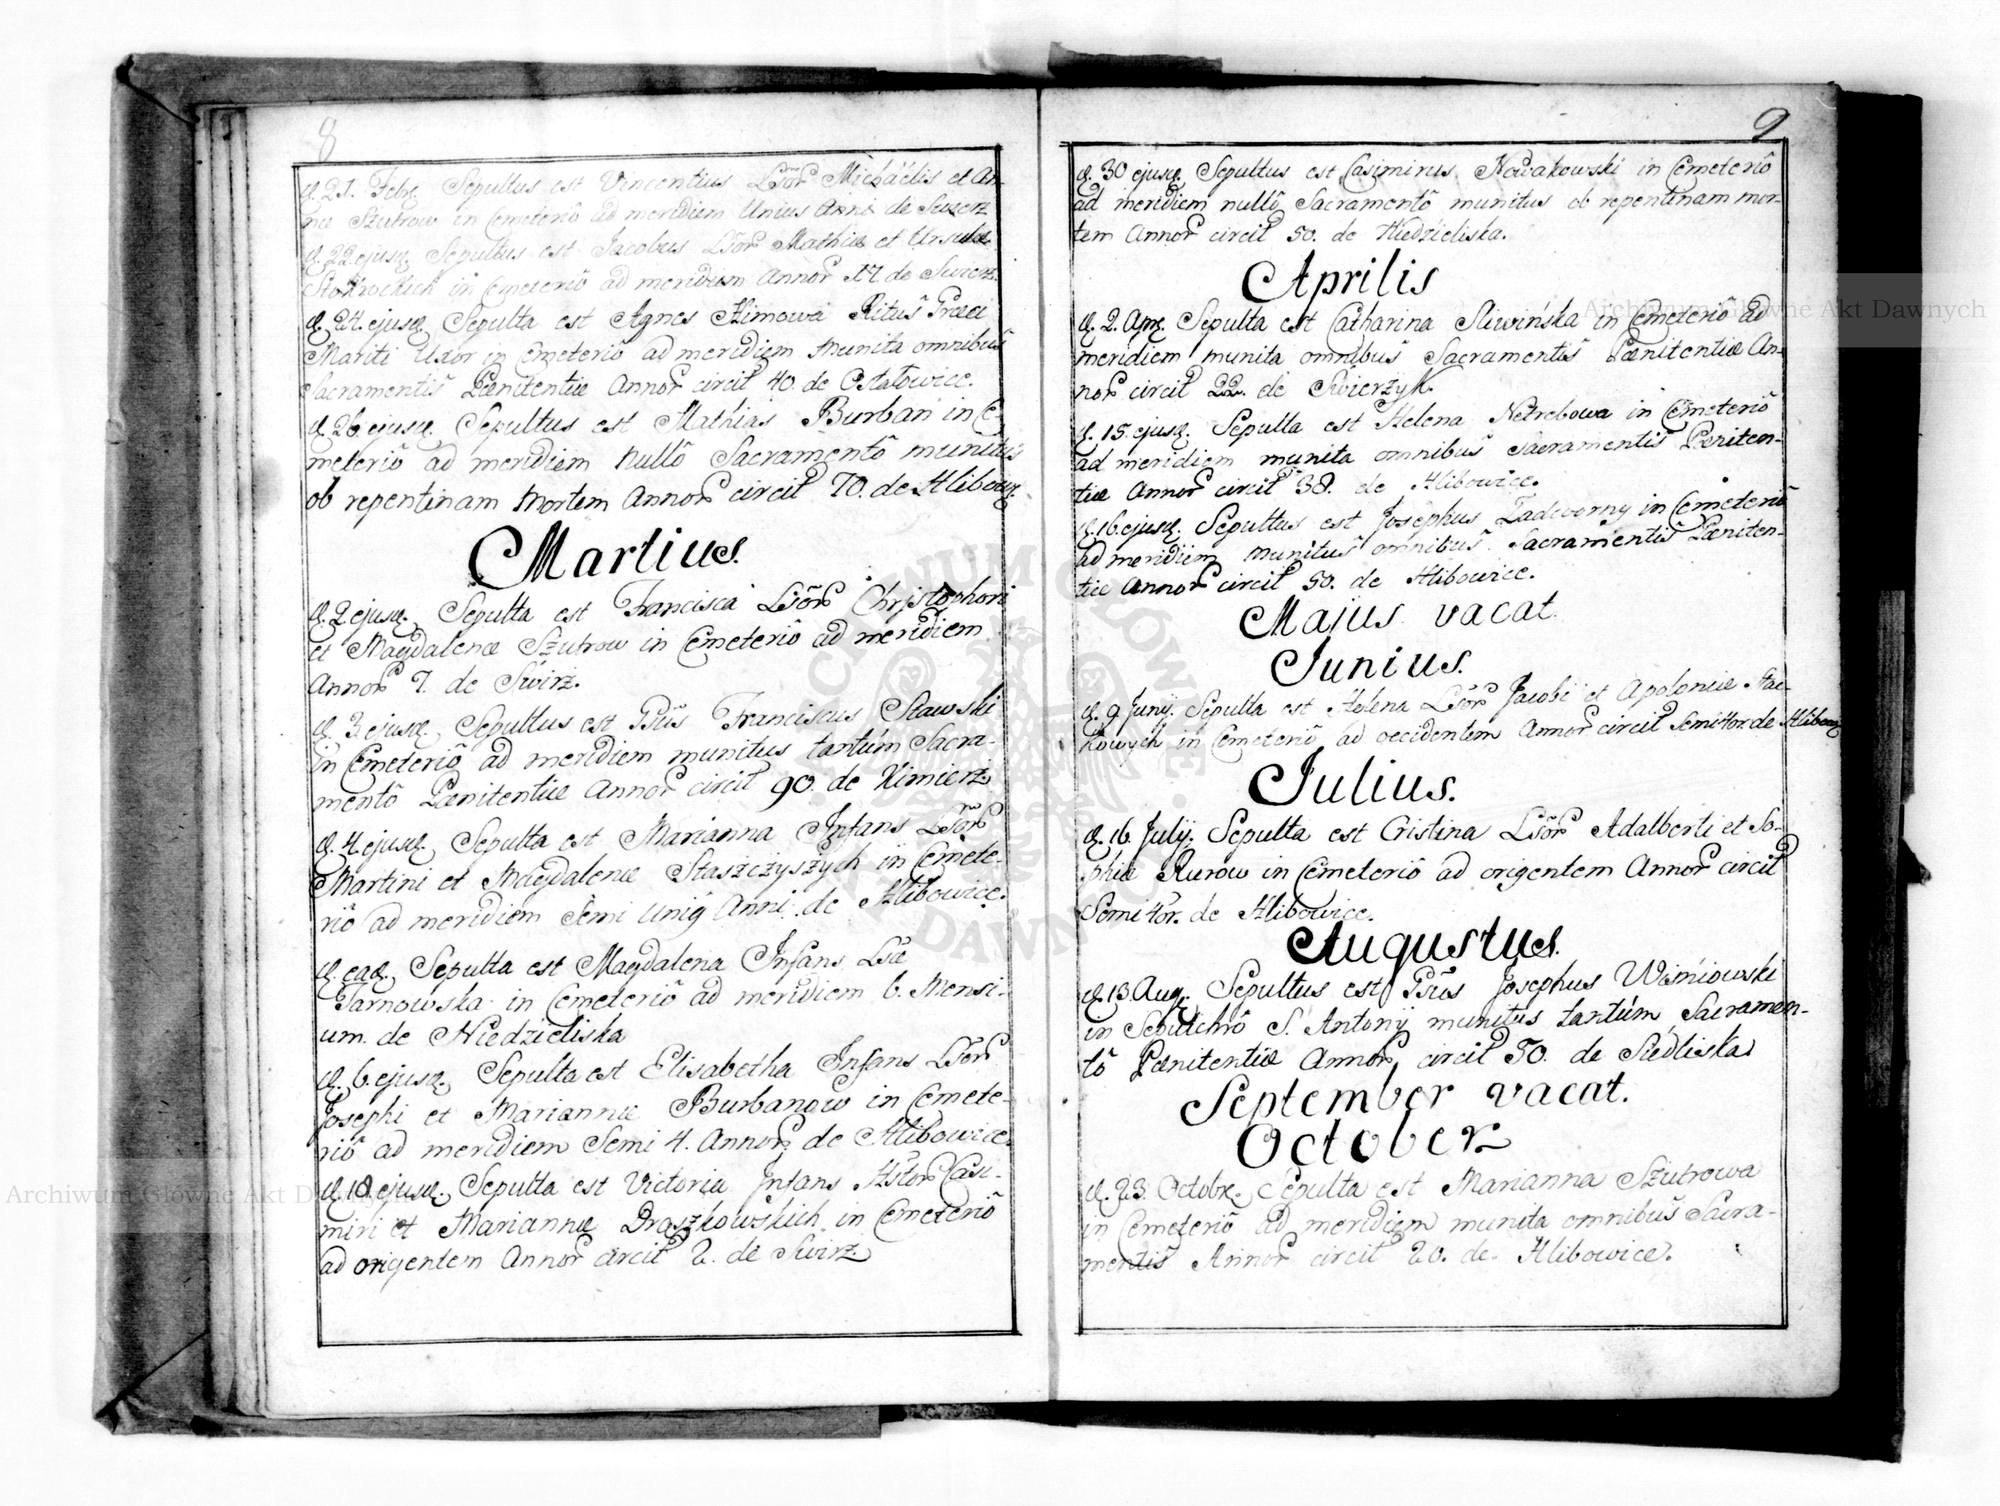 8
d. 21. Febr. Sepultus est Vincentius L͞gor Michaëlis et An-
næ Szutrow in Cemeteriô ad meridiem Unius Anni de Swierz
d. 22 ejusq. Sepultus est Jacobus L͞gor Mathiæ et Ursulæ
in Cemeteriô ad meridiem Annor 17 de Swierz.
d. 24. ejusq. Sepulta est Agnes Klimowa Ritûs Græci
Mariti Uxor in Cemeteriô ad meridiem munita omnibus
Sacramentis Pœnitentiæ Annor circit 40. de Ostalowice.
d. 26. ejusq. Sepultus est Mathias Burban in Ce-
meteriô ad meridiem nullô Sacramentô munitus
ob repentinam mortem Annor circit 70. de Hlibowiz
Martius.
d. 2 ejusq. Sepulta est Francisca L͞gor Christophori
et Magdalenæ Szutrow in Cemeteriô ad meridiem
Annor 7. de Swirz.
d. 3 ejusq. Sepultus est G͞sus Franciscus Stawski
in Cemeteriô ad meridiem munitus tantúm Sacra-
mentô Pœnitentiæ Annor circit 90. de Kimierz
d. 4. ejusq. Sepulta est Marianna Infans L͞gor
Martini et Magdalenæ Staszczyszych in Cemete-
riô ad meridiem Semi Uniq Anni de Hlibowice.
d. eaq. Sepulta est Magdalena Infans L͞gæ
Tarnowska in Cemeteriô ad meridiem 6. Mensi-
um. de Niedzieliska
d. 6. ejusq. Sepulta est Elisabetha Infans L͞gor
Josephi et Mariannæ Burbanow in Cemete-
riô ad meridiem Semi 4. Annor de Hlibowice.
d. 18 ejusq. Sepulta est Victoria Infans Casi-
miri et Mariannæ Draszkowskich in Cemeteriô
ad origentem Annor circit 2. de Swirz.
9
d. 30 ejusq. Sepultus est Casimirus Nowakowski in Cemeteriô
ad meridiem nullô Sacramentô munitus ob repentinam mor-
tem Annor circit 50. de Niedzieliska.
Aprilis
d. 2. Apr. Sepulta est Catharina Sliwińska in Cemeteriô ad
meridiem munita omnibus Sacramentis Pœnitentiæ An-
nor circit 22. de Swierzyk.
d. 15. ejusq. Sepulta est Helena Netrebowa in Cemeteriô
ad meridiem munita omnibus Sacramentis Pœniten-
tiæ Annor circit 38. de Hlibowice.
d. 16. ejusq. Sepultus est Josephus Zadworny in Cemeteriô
ad meridiem munitus omnibus Sacramentis Pœniten-
tiæ Annor circit 50. de Hlibowice.
Majus vacat.
Junius.
d. 9 Junij. Sepulta est Helena L͞gor Jacobi et Apoloniæ Stac-
kowych in Cemeteriô ad occidentem Annor circit Semi 4or. de Hlibowiz
Julius.
d. 16 Julij. Sepulta est Cristina L͞gor Adalberti et So-
phiæ Rurow in Cemeteriô ad origentem Annor circit
Semi 4or. de Hlibowice.
Augustus.
d. 13. Aug. Sepultus est G͞sus Josephus Wiśniowski
in Sepulchrô S. Antonij munitus tantúm Sacramen-
tô Pœnitentiæ Annor circit 50. de Siedliska
September vacat.
October
d. 23. Octobr. Sepulta est Marianna Szutrowa
in Cemeteriô ad meridiem munita omnibus Sacra-
mentis Annor circit 20. de Hlibowice.
Archiwum Główne Akt Dawnych
Archiwum Główne Akt Dawnych
ARCHIWUM GŁÓWNE AKT DAWNYCH